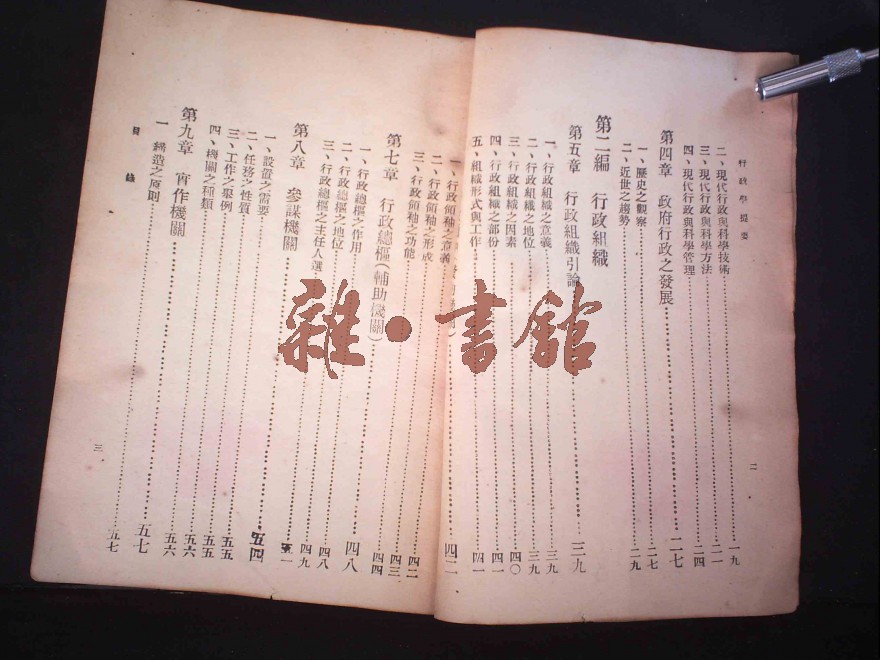 行政學提要
二
二、現代行政與科學技術 一九
三、現代行政與科學方法 二一
四、現代行政與科學管理 二四
第四章 政府行政之發展 二七
一、歷史之觀察 二七
二、近世之趨勢 二九
第二編 行政組織
第五章 行政組織引論 三九
一、行政組織之意義 三九
二、行政組織之地位 三九
三、行政組織之因素 四〇
四、行政組織之部份 四一
五、組織形式與工作 四一
四二
一、行政領袖之意義
二、行政領袖之形成 四二
三、行政領袖之功能 四三
第七章 行政總樞(輔助機關) 四四
一、行政總樞之作用 四八
二、行政總樞之地位 四八
三、行政總樞之主任人選 四九
第八章 參謀機關
一、設置之需要 五四
二、任務之性質 五五
三、工作之舉例 五五
四、機關之種類 五六
第九章 實作機關 五七
一 構造之原則 五七
目錄
三
雜·書館